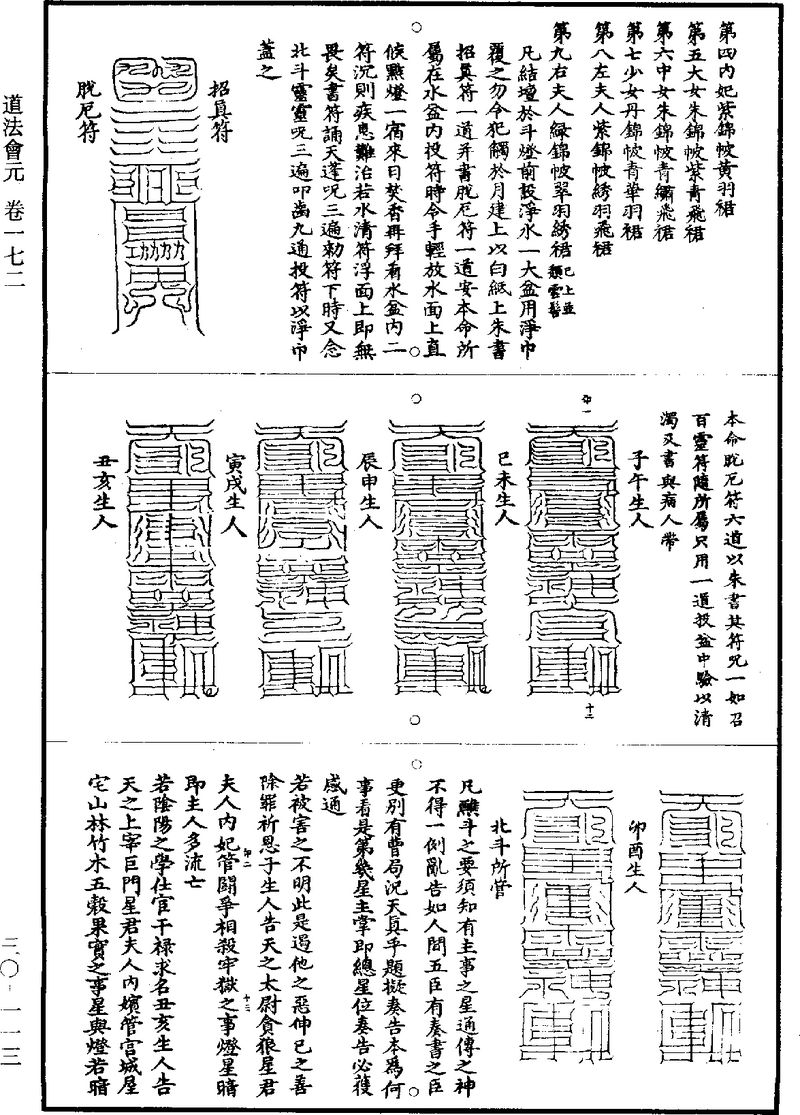 第四內妃紫錦帔黃羽裙
第五大女朱錦帔紫青飛裙
第六中女朱錦帔青繡飛裙
第七少女丹錦帔青華羽裙
第八左夫人紫錦帔綉羽飛裙
第九右夫人綠錦帔翠羽綉裙已上並頹雲髻
凡結壇於斗燈前設淨水一大盆用淨巾
覆之勿令犯觸於月建上以白紙上朱書
招真符一道并書脫厄符一道安本命所
屬在水盆內投符時令手輕放水面上直
候點燈一宿來日焚香再拜看水盆內二
符沉則疾患難治若水清符浮面上即無
畏矣書符誦天蓬呪三遍勑符下時又念
北斗靈靈呪三遍叩齒九通投符以淨巾
蓋之
招真符
脫厄符
本命脫厄符六道以朱書其符呪一如召
百靈符隨所屬只用一道投盆中驗以清
濁又書與病人帶
子午生人
巳未生人
辰申生人
寅戌生人
丑亥生人
卯酉生人
北斗所管
凡醮斗之要須知有主事之星通傳之神
不得一例亂告如人間五臣有奏書之臣
更別有曹局況天真乎題擬奏告本為何
事看是第幾星主掌即總星位奏告必獲
感通
若被害之不明此是遏他之惡伸已之善
除罪祈恩子生人告天之太尉貪狼星君
夫人內妃管鬪爭相殺牢獄之事燈星暗
即主人多流亡
若陰陽之學仕官干祿求名丑亥生人告
天之上宰巨門星君夫人內嬪管宮城屋
宅山林竹木五穀果實之事星與燈若暗
道法會元 卷一七二
三〇-一一三